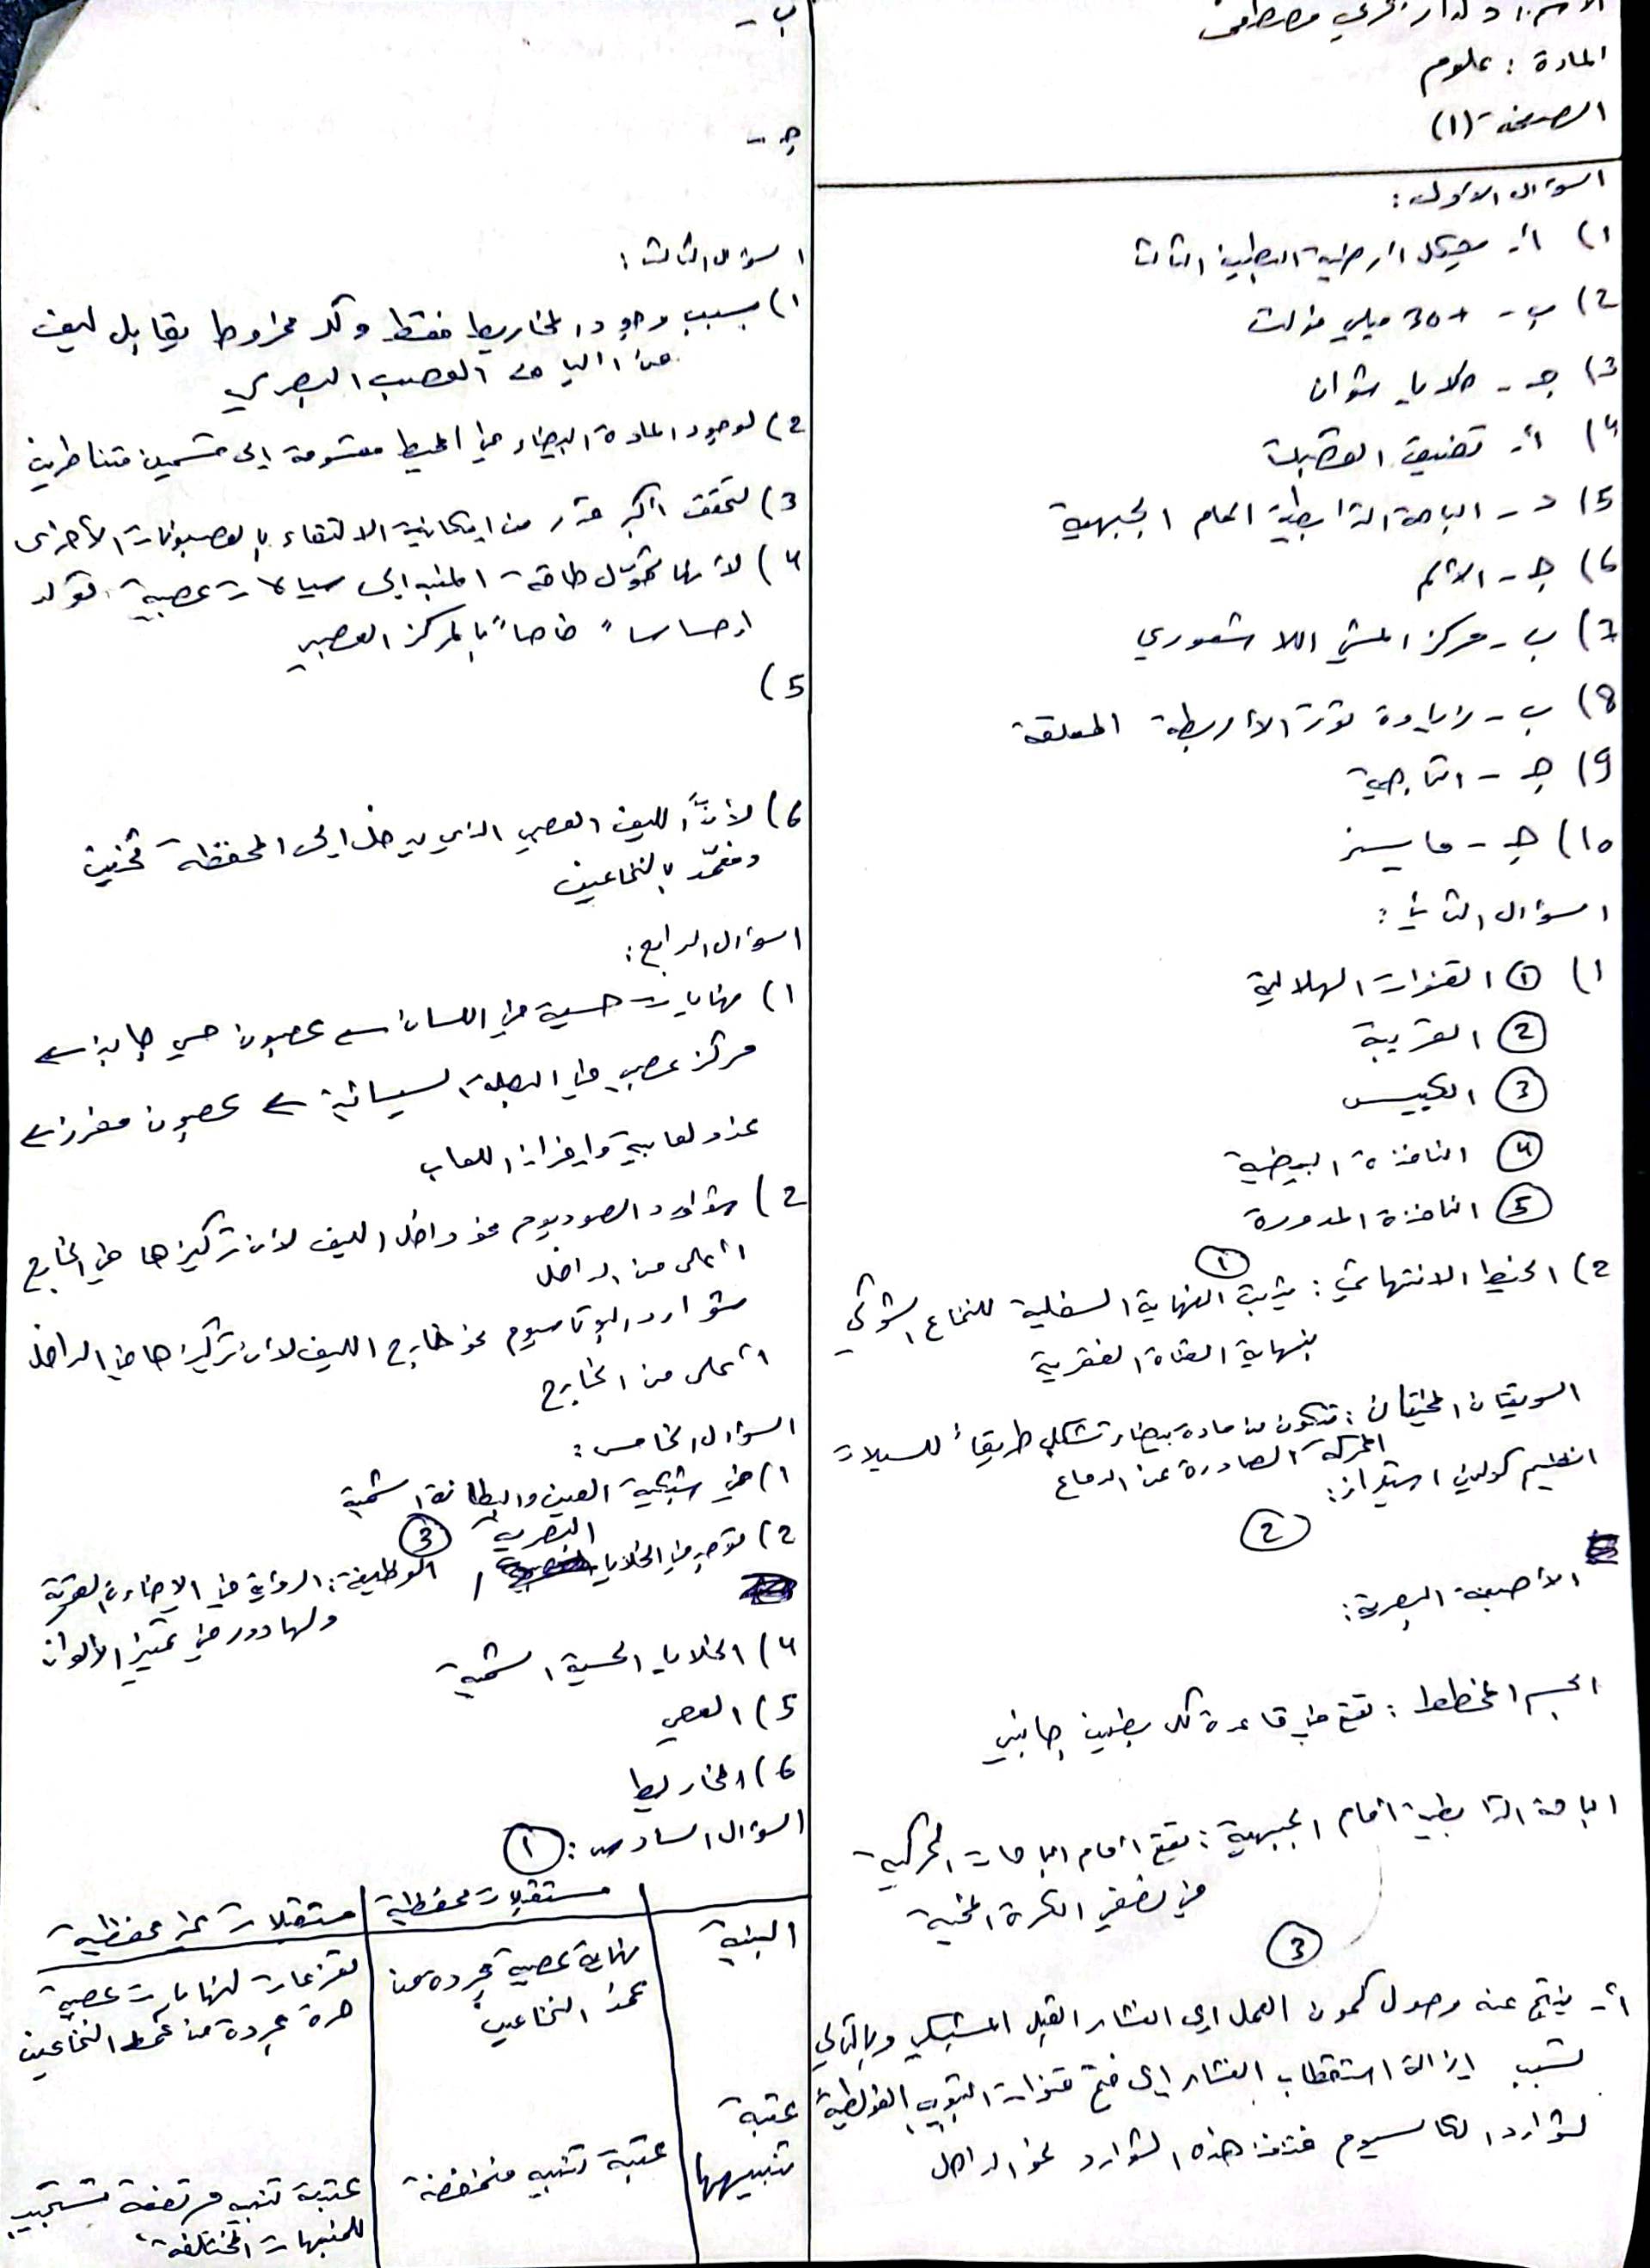 المادة : علوم
الصفحة (1)
السؤال الأول :
1) أ- هيكل أرضية البطين الثالث
2) ب - +30 ميلي فولت
3) جـ - خلايا شوان
4) أ- تضيق القصبات
5) د - الباحة الترابطية أمام الجبهية
6) جـ - الألم
7) ب - مركز المشي اللاشعوري
8) ب - زيادة توتر الأربطة المعلقة
9) جـ - التاجية
10) جـ - مايسنر
السؤال الثاني :
1) ① القنوات الهلالية
② القريبة
③ الكييس
④ النافذة البيضية
⑤ النافذة المدورة
2) الخيط الانتهائي : ① يثبت النهاية السفلية للنخاع الشوكي
بنهاية القناة الفقرية
السويقتان المخيتان : تتكون من مادة بيضاء تشكل طريقاً للسيلات
المحركة الصادرة عن الدماغ
انظيم كولين استيراز :
②
الأصبغة البصرية :
الجسم المخطط : تقع في قاعدة كل بطين جانبي
الباحة الترابطية أمام الجبهية : تقع أمام الباحات الحركية
في نصفي الكرة المخية
③
أ- ينتج عنه وصول كمون العمل إلى الغشاء القبل المشبكي وبالتالي
تسبب إزالة استقطاب الغشاء إلى فتح قنوات التبويب الفولطية
لشوارد الكالسيوم فتنفذ هذه الشوارد نحو الداخل
ب -
جـ -
السؤال الثالث :
1) بسبب وجود المخاريط فقط وكل مخروط يقابل ليف
من ألياف العصب البصري
2) لوجود المادة البيضاء في المحيط مقسومة إلى قسمين متناظرين
3) لتحقق أكبر قدر من إمكانية الالتقاء بالعصبونات الأخرى
4) لأنها تحوّل طاقة المنبه إلى سيالات عصبية تولد
إحساساً خاصاً بالمركز العصبي
5)
6) لأنَّ الليف العصبي الذي يدخل إلى المحفظة ثخين
ومغمّد بالنخاعين
السؤال الرابع :
1) نهايات حسية في اللسان ← عصبون حسي جابذ ←
مركز عصبي في البصلة السيسائية ← عصبون مفرز ←
غدد لعابية وإفراز اللعاب
2) شوارد الصوديوم نحو داخل الليف لأن تركيزها في الخارج
أعلى من الداخل
شوارد البوتاسيوم نحو خارج الليف لأن تركيزها في الداخل
أعلى من الخارج
السؤال الخامس :
1) في شبكية العين والبطانة الشمية
2) توجد في الخلايا البصرية ③ الوظيفة : الرؤية في الإضاءة القوية
ولها دور في تمييز الألوان
4) الخلايا الحسية الشمية
5) العصي
6) المخاريط
السؤال السادس : ①
مستقبلات محفظية | مستقبلات غير محفظية
البنية | نهاية عصبية مجردة من غمد النخاعين | تفرعات لنهايات عصبية حرة مجردة من غمد النخاعين
عتبة تنبيهها | عتبة تنبيه منخفضة | عتبة تنبيه مرتفعة تستجيب للمنبهات المختلفة